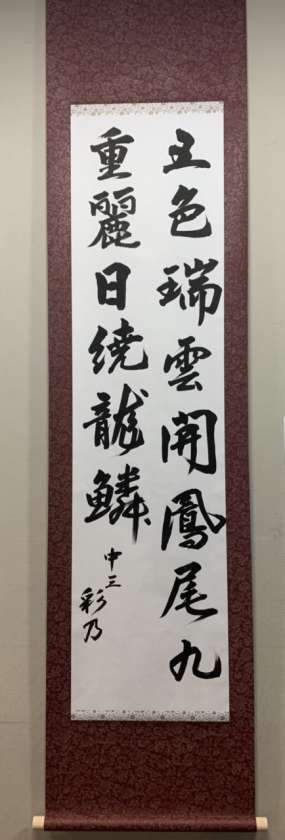 五色瑞雲開鳳尾九
重麗日繞龍鱗
中三
彩乃